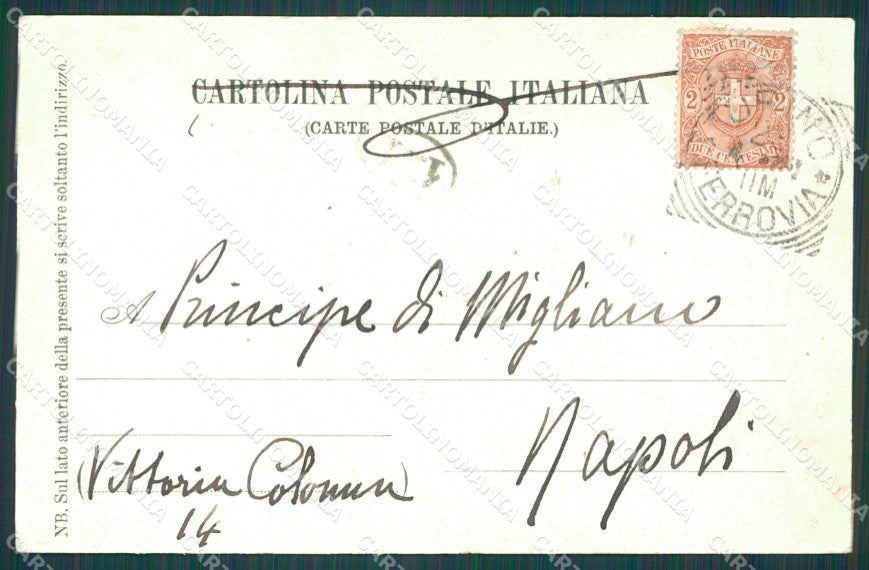 CARTOLINA POSTALE ITALIANA
(CARTE POSTALE D'ITALIE.)
POSTE ITALIANE
2 2
DUE CENTESIMI
FERROVIA
11M
NB. Sul lato anteriore della presente si scrive soltanto l'indirizzo.
A Principe di Migliano
Napoli
(Vittoria Colonna)
14
CARTOLINOMANIA